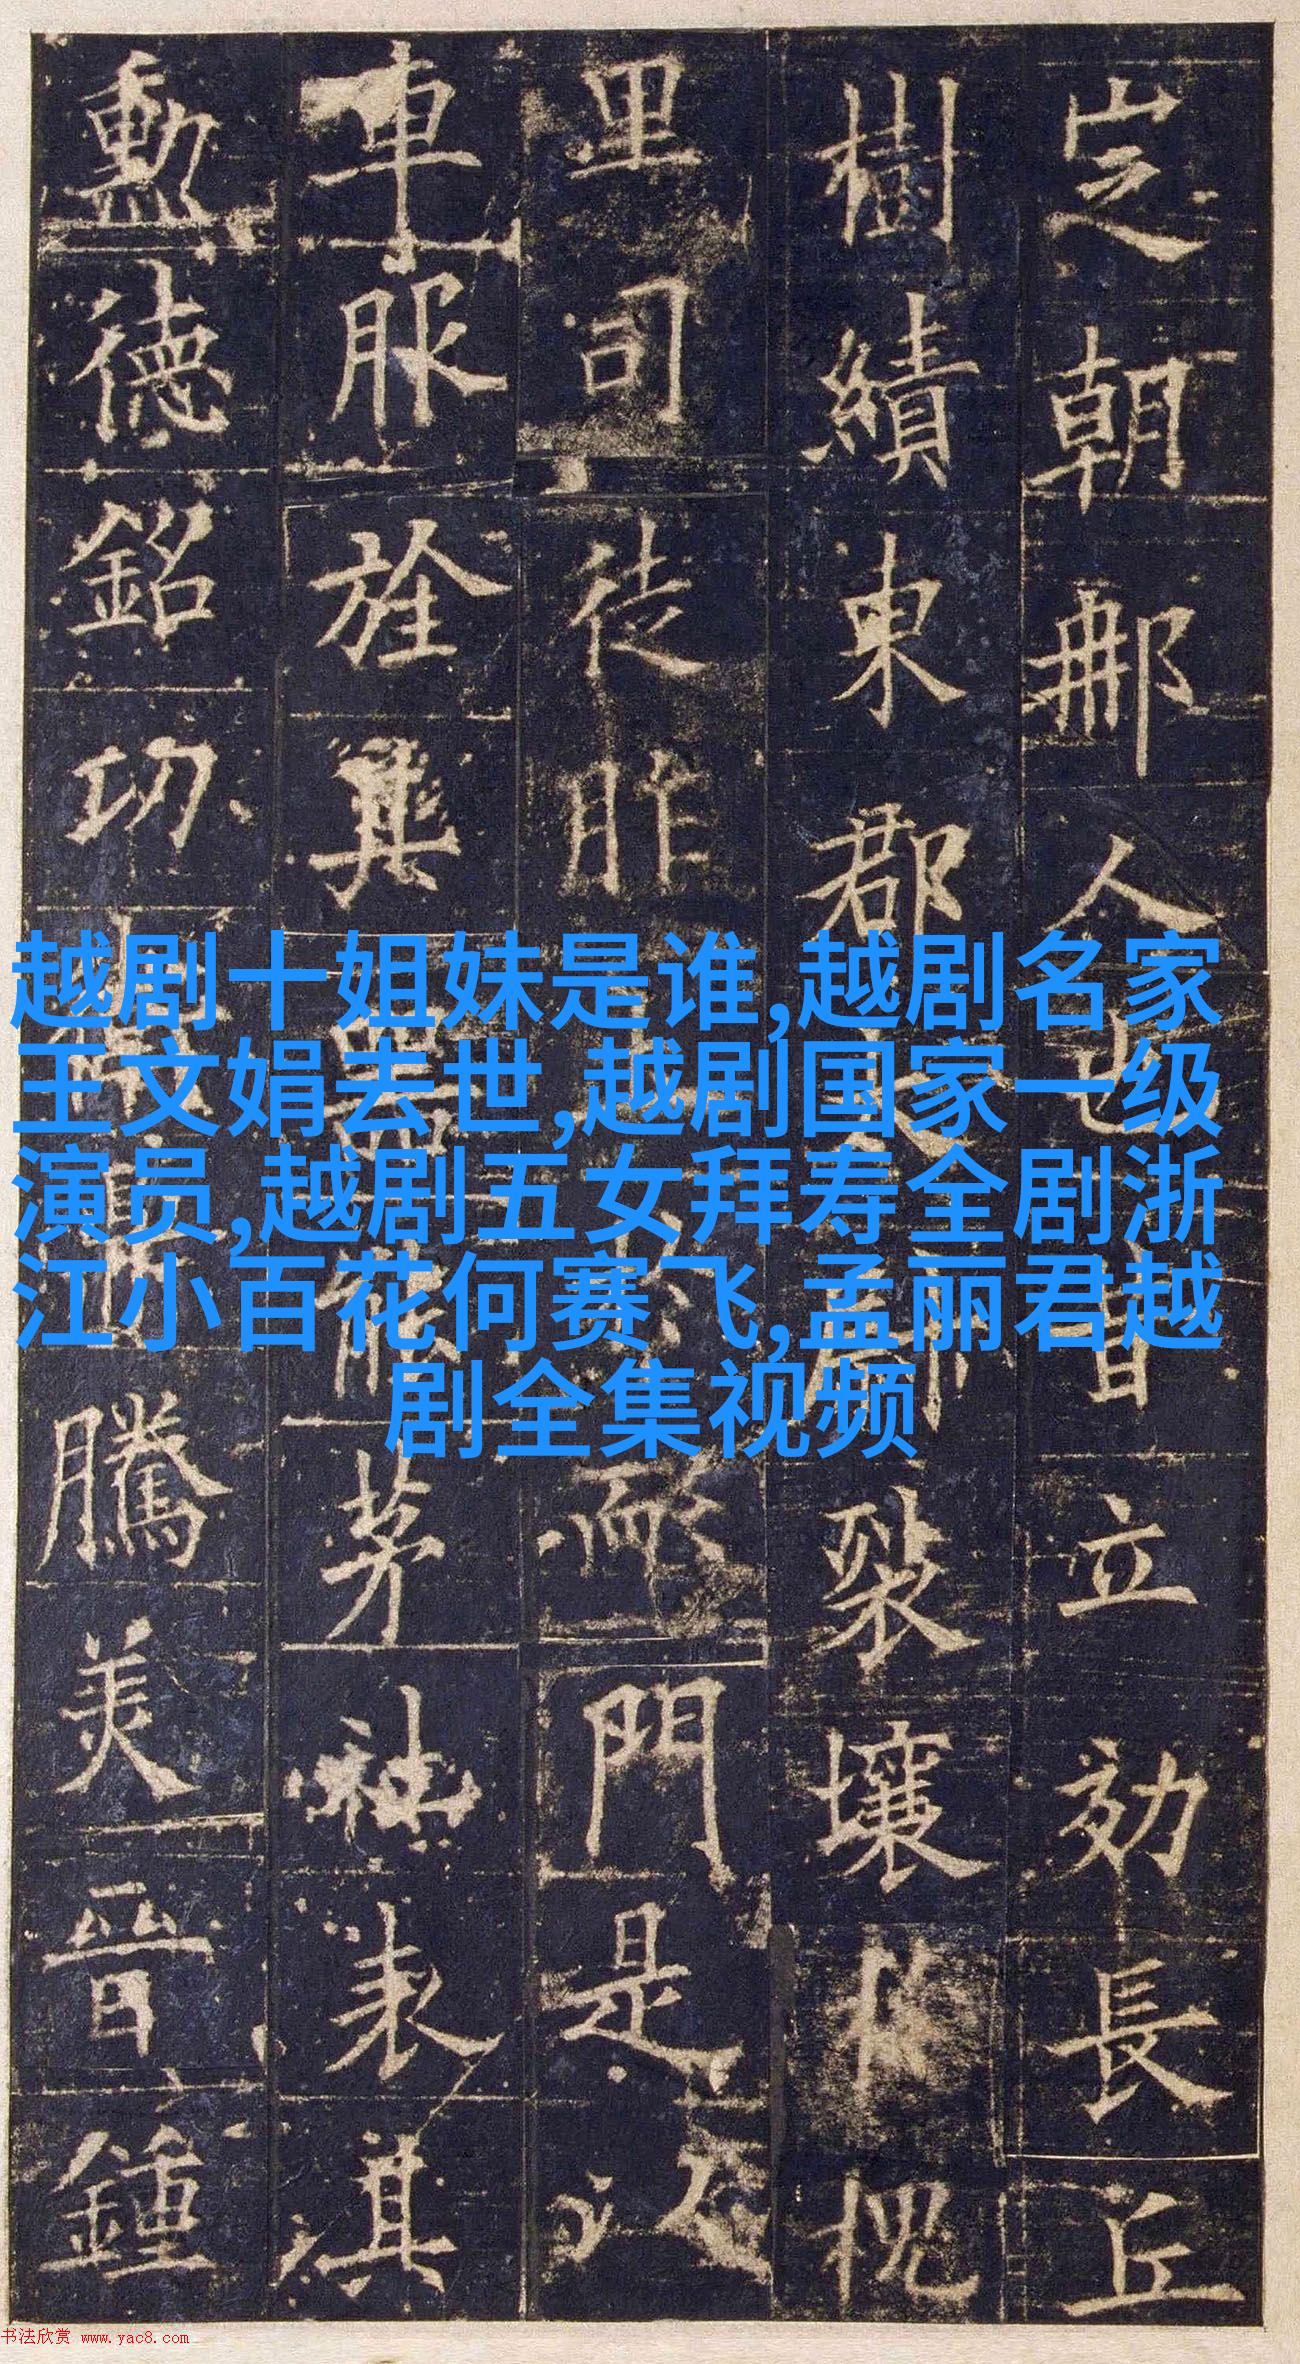 定朝那人也晋立効長丘
樹績東郡太 裂壤 槐
里司徒胙 而 門是
車服旌其器能茅社表其
勳德銘功 騰美晉鍾
越剧十姐妹是谁,越剧名家
王文娟去世,越剧国家一级
演员,越剧五女拜寿全剧浙
江小百花何赛飞,孟丽君越
剧全集视频
书法欣赏 www.yac8.com